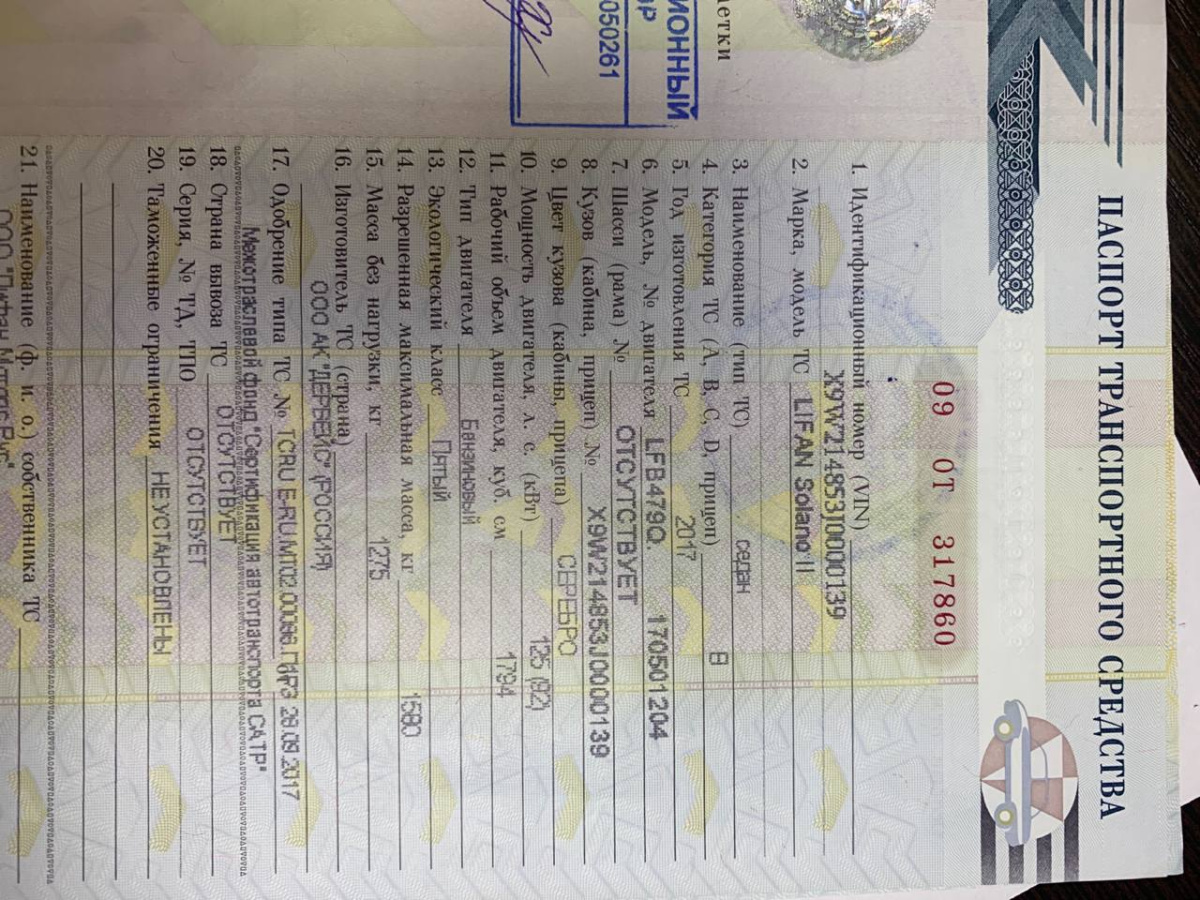 ПАСПОРТ ТРАНСПОРТНОГО СРЕДСТВА
09 ОТ 317860
1. Идентификационный номер (VIN)
X9W214853J0000139
2. Марка, модель ТС LIFAN Solano II
3. Наименование (тип ТС) седан
4. Категория ТС (А, В, С, D, прицеп) В
5. Год изготовления ТС 2017
6. Модель, № двигателя LFB479Q. 170501204
7. Шасси (рама) № ОТСУТСТВУЕТ
8. Кузов (кабина, прицеп) № X9W214853J0000139
9. Цвет кузова (кабины, прицепа) СЕРЕБРО
10. Мощность двигателя, л. с. (кВт) 125 (92)
11. Рабочий объем двигателя, куб. см 1794
12. Тип двигателя Бензиновый
13. Экологический класс Пятый
14. Разрешенная максимальная масса, кг 1580
15. Масса без нагрузки, кг 1275
16. Изготовитель ТС (страна)
ООО АК "ДЕРВЕЙС" (РОССИЯ)
17. Одобрение типа ТС № TCRU E-RU.MT02.00096.П1Р3 28.09.2017
Межотраслевой фонд "Сертификация автотранспорта САТР"
18. Страна вывоза ТС ОТСУТСТВУЕТ
19. Серия, № ТД, ТПО ОТСУТСТВУЕТ
20. Таможенные ограничения НЕ УСТАНОВЛЕНЫ
21. Наименование (ф. и. о.) собственника ТС
ООО "Лифан Моторс Рус"
етки
ИОННЫЙ
ОР
050261